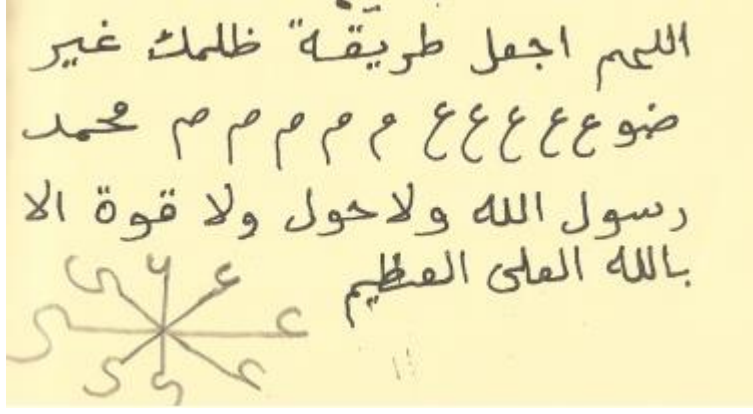 اللهم اجعل طريقة ظلمك غير
ضوع ع ع ع ع م م م م م م محمد
رسول الله ولا حول ولا قوة الا
بالله العلى العظيم